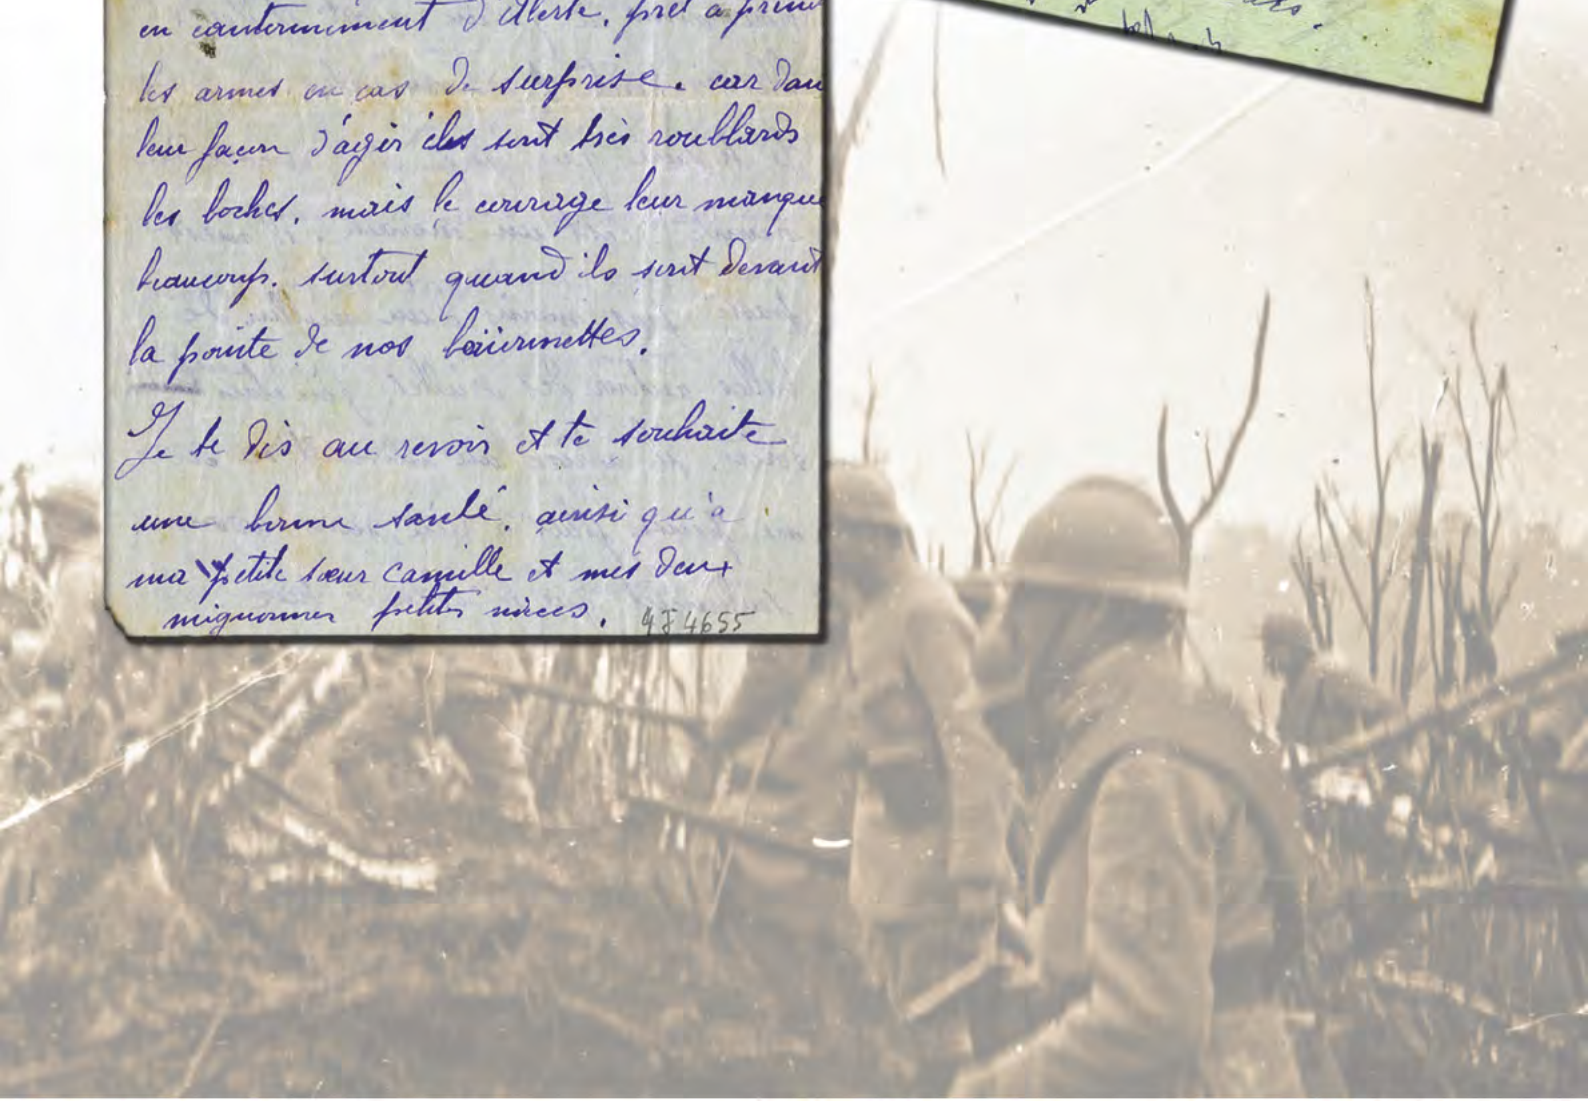 en cantonnement d'Alerte, prêt à pren
les armes en cas de surprise. car dan
leur façon d'agir ils sont très roublards
les boches, mais le courage leur manque
beaucoup. surtout quand ils sont devant
la pointe de nos baïonnettes.
Je te dis au revoir et te souhaite
une bonne santé, ainsi qu'à
ma petite sœur Camille et mes deux
mignonnes petites nièces.
4J4655